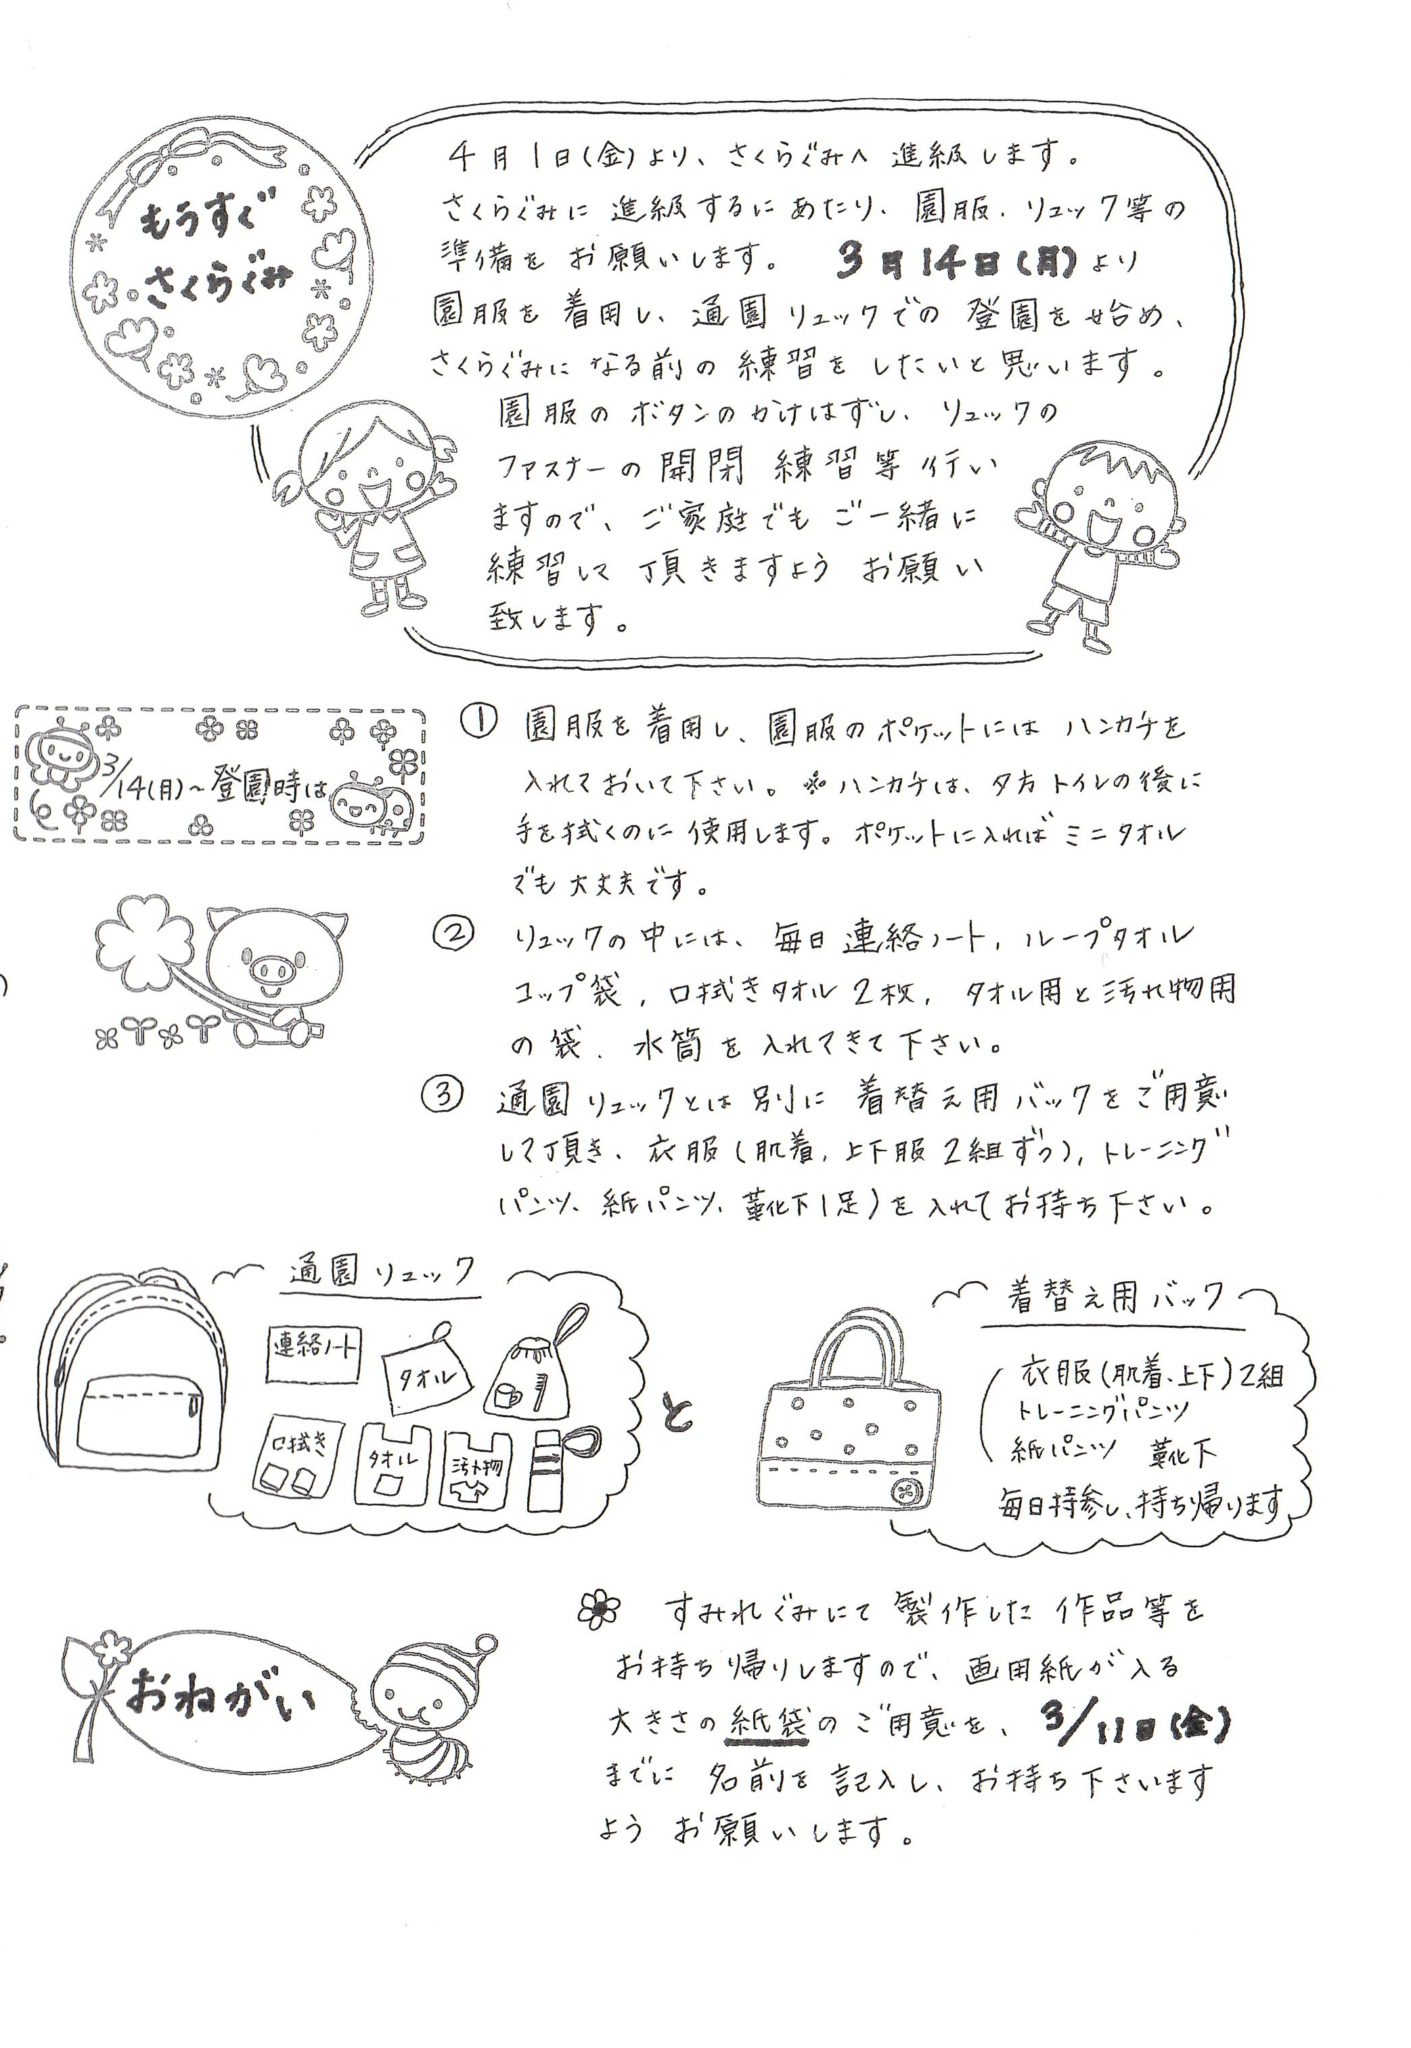 もうすぐ
さくらぐみ
4月1日(金)より、さくらぐみへ進級します。
さくらぐみに進級するにあたり、園服、リュック等の
準備をお願いします。 3月14日(月)より
園服を着用し、通園リュックでの登園を始め、
さくらぐみになる前の練習をしたいと思います。
園服のボタンのかけはずし、リュックの
ファスナーの開閉練習等行い
ますので、ご家庭でもご一緒に
練習して頂きますようお願い
致します。
3/14(月)~登園時は
① 園服を着用し、園服のポケットにはハンカチを
入れておいて下さい。※ハンカチは、夕方トイレの後に
手を拭くのに使用します。ポケットに入ればミニタオル
でも大丈夫です。
② リュックの中には、毎日連絡ノート、ループタオル
コップ袋、口拭きタオル2枚、タオル用と汚れ物用
の袋、水筒を入れてきて下さい。
③ 通園リュックとは別に着替え用バックをご用意
して頂き、衣服(肌着、上下服2組ずつ)、トレーニング
パンツ、紙パンツ、靴下1足)を入れてお持ち下さい。
通園リュック
連絡ノート
タオル
口拭き
タオル
汚れ物
と
着替え用バック
衣服(肌着、上下)2組
トレーニングパンツ
紙パンツ 靴下
毎日持参し、持ち帰ります
おねがい
すみれぐみにて製作した作品等を
お持ち帰りしますので、画用紙が入る
大きさの紙袋のご用意を、3/11日(金)
までに名前を記入し、お持ち下さいます
ようお願いします。